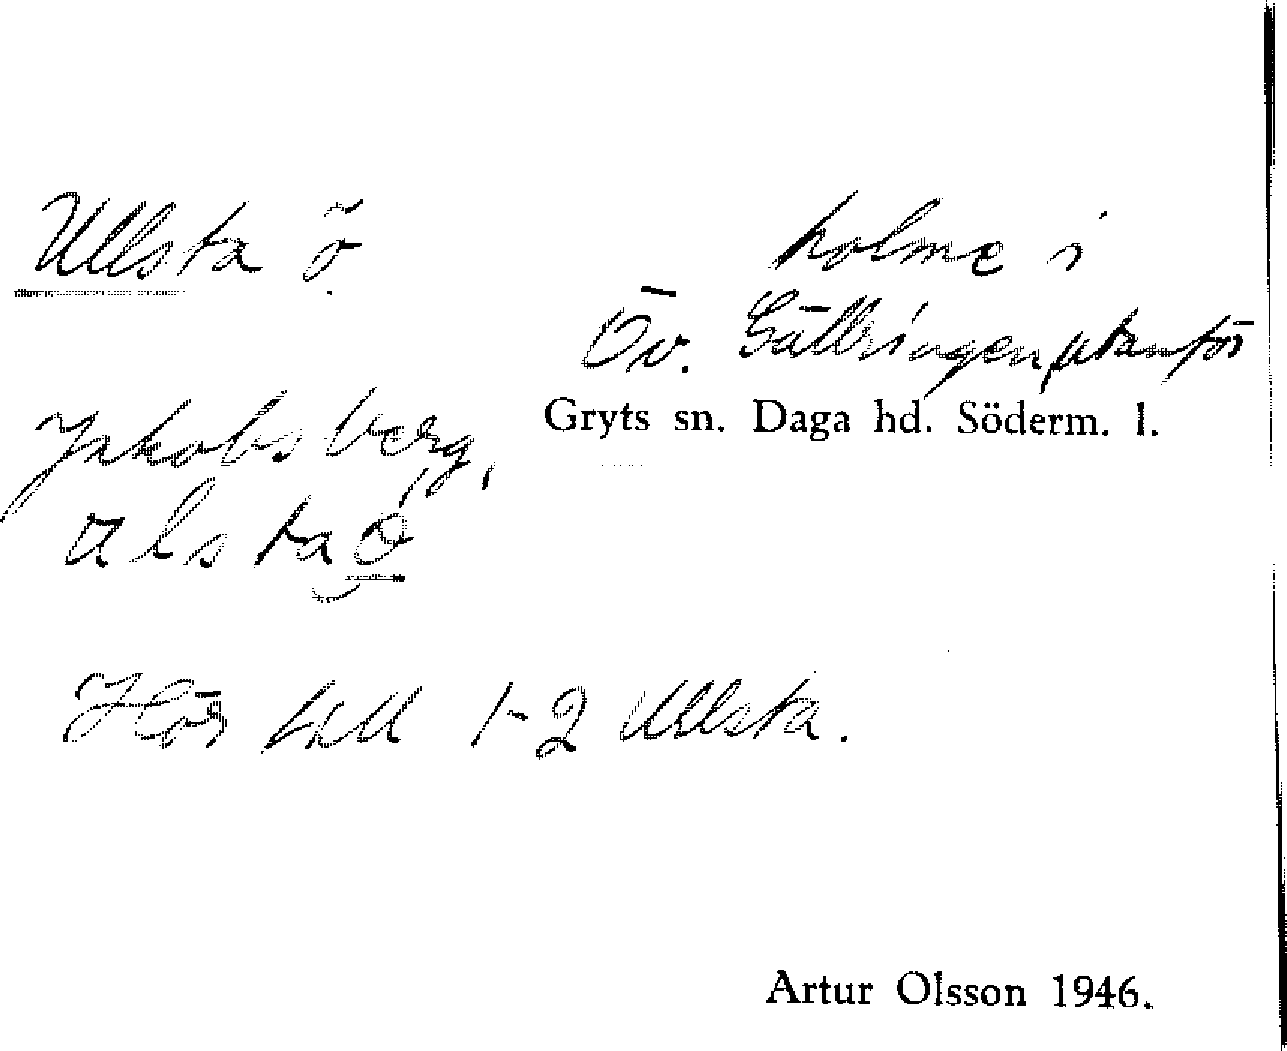 Ullsta ö
holme i
Öv. Gällringen utanför
Gryts sn. Daga hd. Söderm. l.
Jakobsberg,
alsta ö
Hör till 1-2 Ullsta.
Artur Olsson 1946.